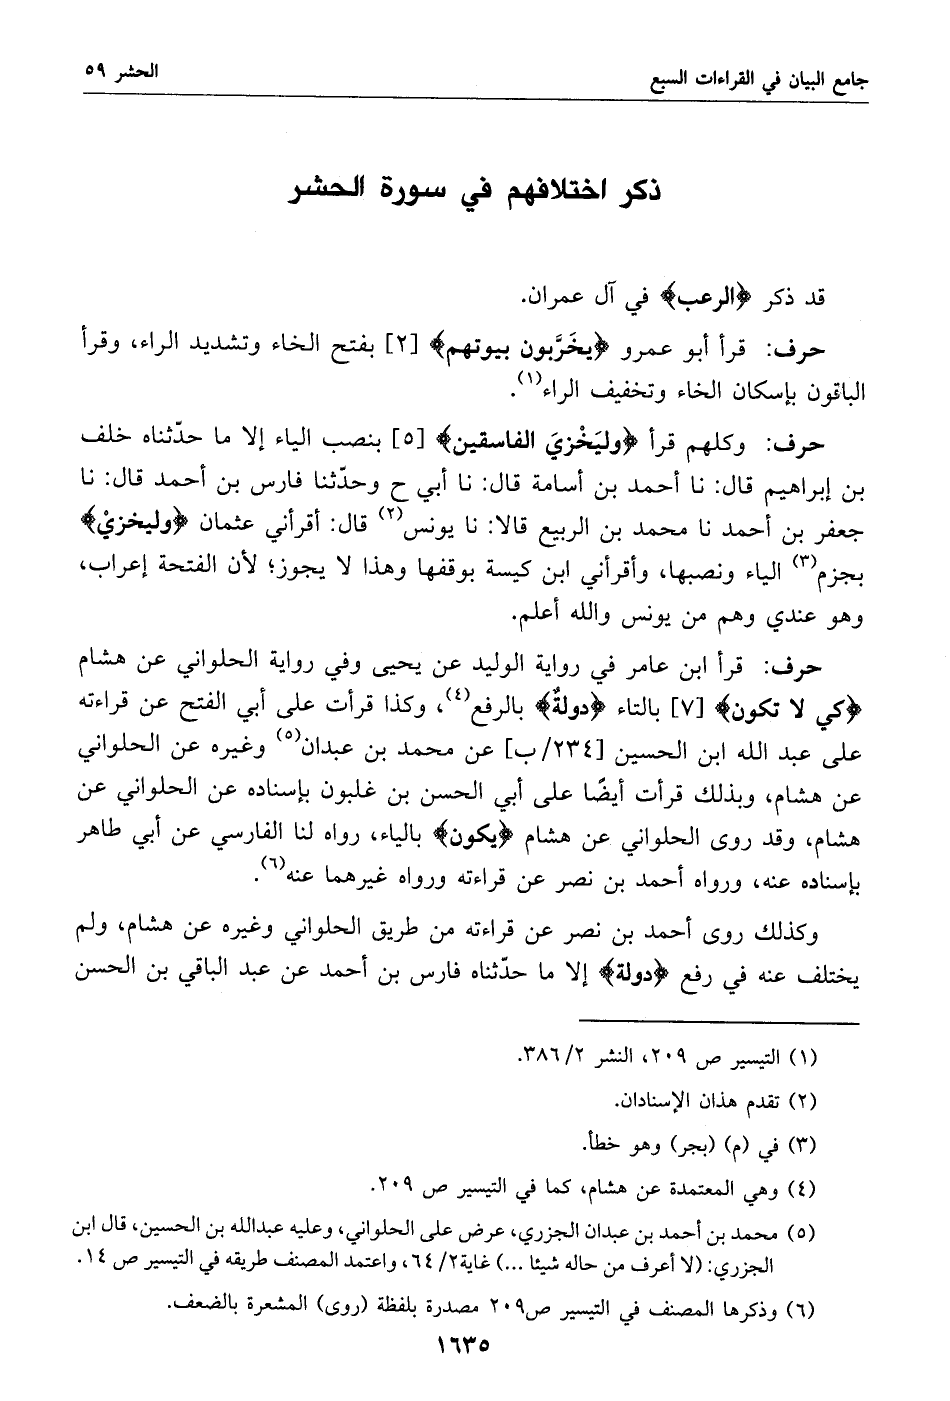 جامع البيان في القراءات السبع
الحشر ٥٩
ذكر اختلافهم في سورة الحشر
قد ذكر ﴿الرعب﴾ في آل عمران.
حرف: قرأ أبو عمرو ﴿يخَرَّبون بيوتهم﴾ [٢] بفتح الخاء وتشديد الراء، وقرأ
الباقون بإسكان الخاء وتخفيف الراء(١).
حرف: وكلهم قرأ ﴿وليَخْزيَ الفاسقين﴾ [٥] بنصب الياء إلا ما حدّثناه خلف
بن إبراهيم قال: نا أحمد بن أسامة قال: نا أبي ح وحدّثنا فارس بن أحمد قال: نا
جعفر بن أحمد نا محمد بن الربيع قالا: نا يونس(٢) قال: أقرأني عثمان ﴿وليخزيْ﴾
بجزم(٣) الياء ونصبها، وأقرأني ابن كيسة بوقفها وهذا لا يجوز؛ لأن الفتحة إعراب،
وهو عندي وهم من يونس والله أعلم.
حرف: قرأ ابن عامر في رواية الوليد عن يحيى وفي رواية الحلواني عن هشام
﴿كي لا تكون﴾ [٧] بالتاء ﴿دولةٌ﴾ بالرفع(٤)، وكذا قرأت على أبي الفتح عن قراءته
على عبد الله ابن الحسين [٢٣٤/ ب] عن محمد بن عبدان(٥) وغيره عن الحلواني
عن هشام، وبذلك قرأت أيضًا على أبي الحسن بن غلبون بإسناده عن الحلواني عن
هشام، وقد روى الحلواني عن هشام ﴿يكون﴾ بالياء، رواه لنا الفارسي عن أبي طاهر
بإسناده عنه، ورواه أحمد بن نصر عن قراءته ورواه غيرهما عنه(٦).
وكذلك روى أحمد بن نصر عن قراءته من طريق الحلواني وغيره عن هشام، ولم
يختلف عنه في رفع ﴿دولة﴾ إلا ما حدّثناه فارس بن أحمد عن عبد الباقي بن الحسن
(١) التيسير ص ٢٠٩، النشر ٢/ ٣٨٦.
(٢) تقدم هذان الإسنادان.
(٣) في (م) (بجر) وهو خطأ.
(٤) وهي المعتمدة عن هشام، كما في التيسير ص ٢٠٩.
(٥) محمد بن أحمد بن عبدان الجزري، عرض على الحلواني، وعليه عبدالله بن الحسين، قال ابن
الجزري: (لا أعرف من حاله شيئا ...) غاية٢/ ٦٤، واعتمد المصنف طريقه في التيسير ص ١٤.
(٦) وذكرها المصنف في التيسير ص٢٠٩ مصدرة بلفظة (روى) المشعرة بالضعف.
١٦٣٥